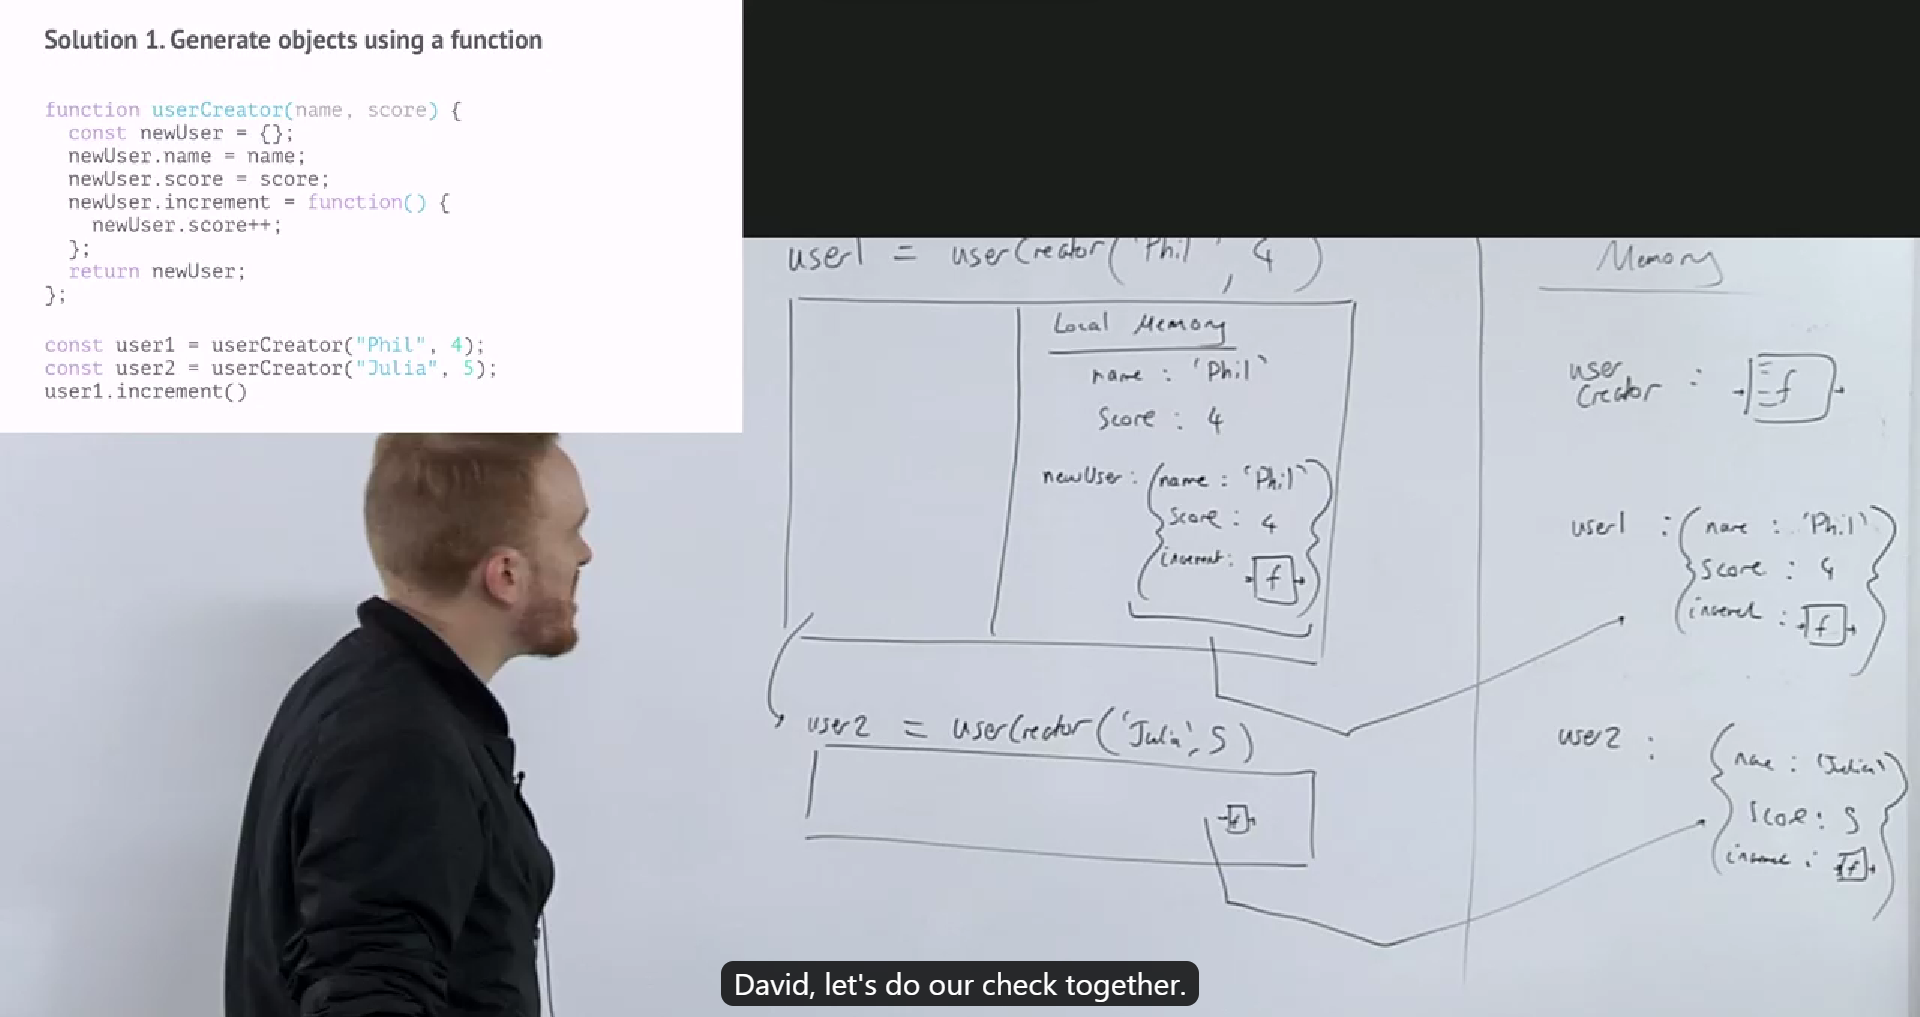 Solution 1. Generate objects using a function
function userCreator(name, score) {
const newUser = {};
newUser.name = name;
newUser.score = score;
newUser.increment = function() {
newUser.score++;
};
return newUser;
};
const user1 = userCreator("Phil", 4);
const user2 = userCreator("Julia", 5);
user1.increment()
user1 = userCreator('Phil', 4)
Local Memory
name : 'Phil'
Score : 4
newUser : { name : 'Phil'
Score : 4
f }
user2 = userCreator('Julia', 5)
f
Memory
user
Creator : f
user1 : { name : 'Phil'
Score : 4
f }
user2 : { name : 'Julia'
Score : 5
f }
David, let's do our check together.